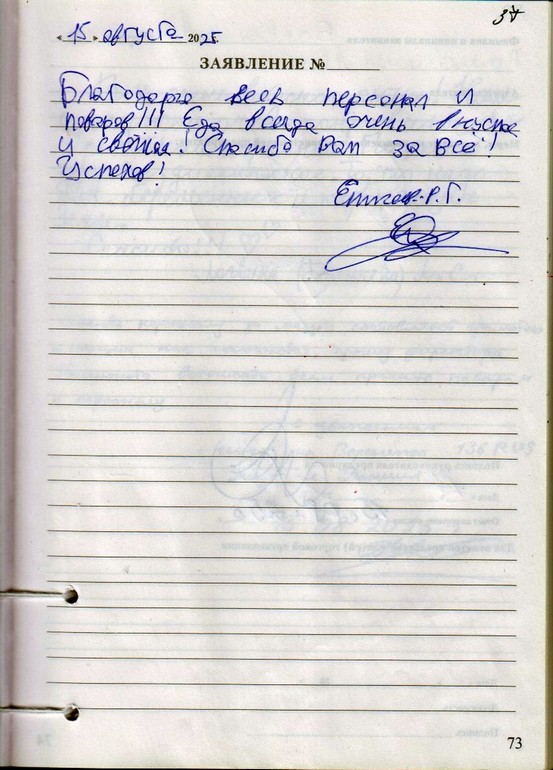 37
« 15 » августа 2025г.
ЗАЯВЛЕНИЕ №
Благодарю весь персонал и
поваров!!! Еда всегда очень вкусная
и свежая! Спасибо Вам за всё!
Успехов!
Р.Г.
73